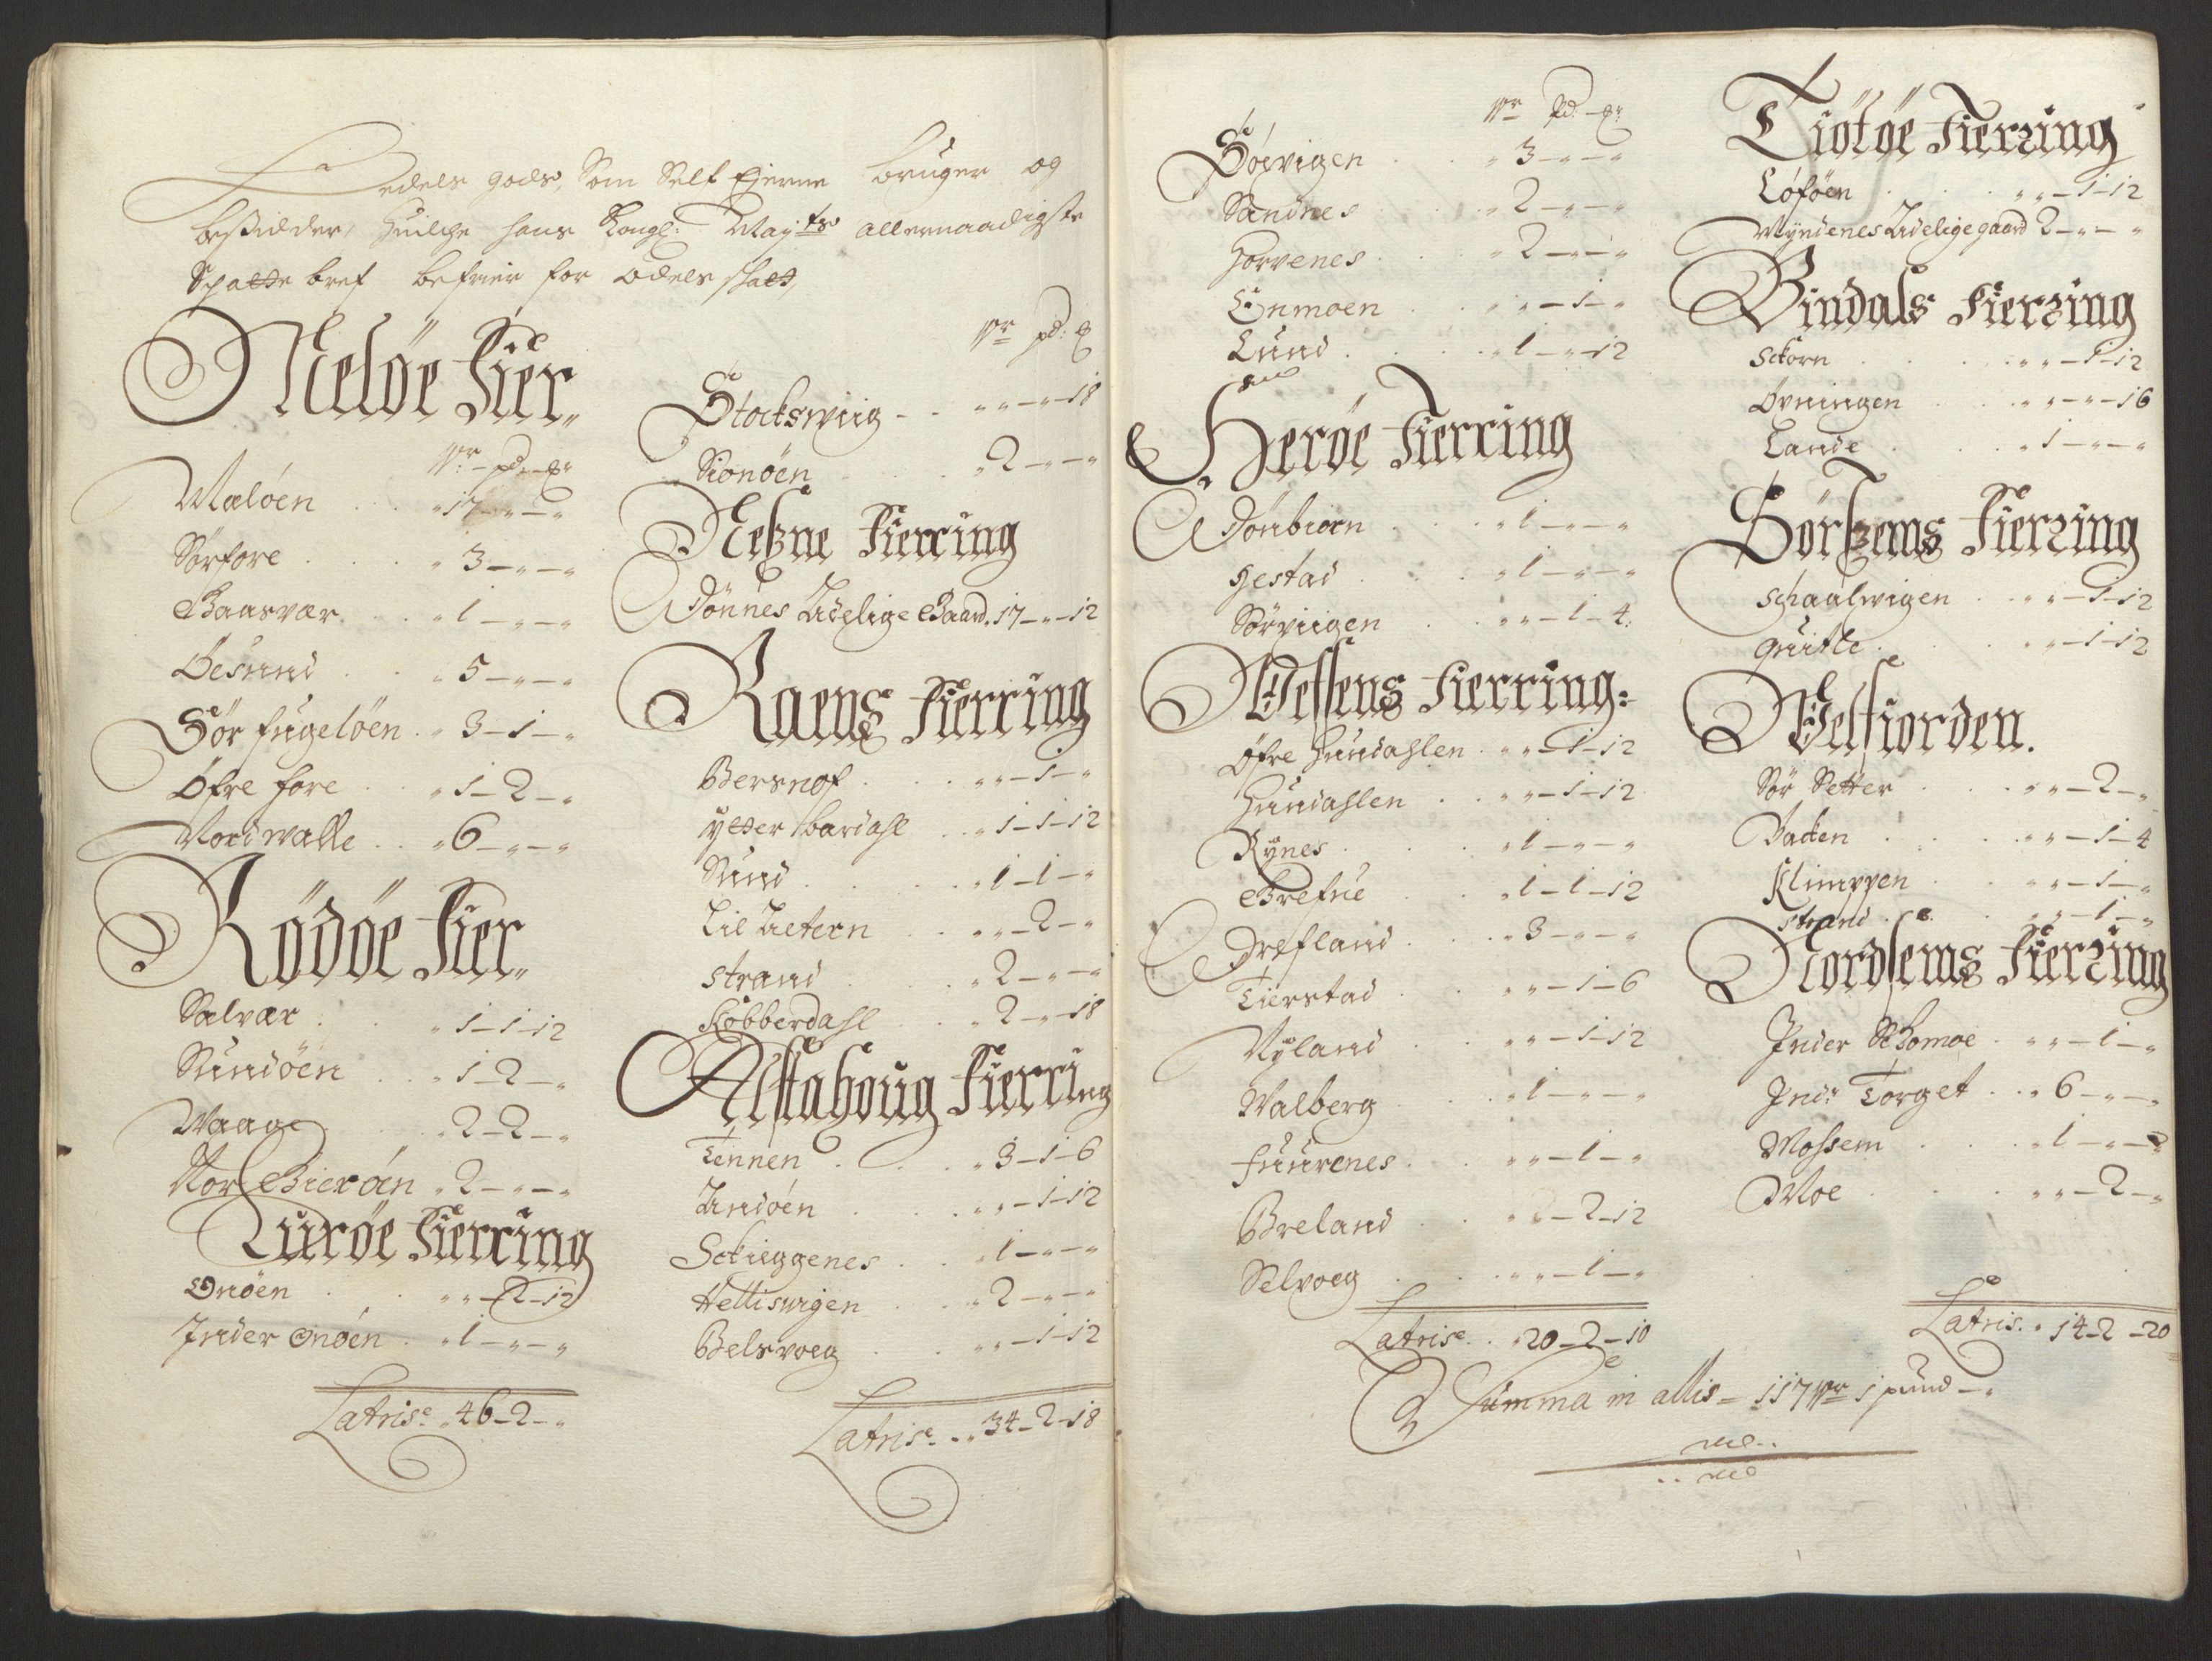 Odels gods, Som Self Ejerne bruger og
besidder, Huilche hans Kongl: May:ts allernaadigste
Schatte bref befrier for odels skatt,
Meløe Fier„
Wr pd: ℔
Meløen . . „ 17 - „ - „
Sørfore . . . „ 3 - „ - „
Gaasvær . . „ 1 - „ - „
Besund . . „ 5 - „ - „
Sør fugeløen . „ 3 - 1 - „
Øfre fore . . „ 1 - 2 - „
Nordwalle . . „ 6 - „ - „
Rødøe Fier„
Selvær . . „ 1 - 1 - 12
Sundøen . . „ 1 - 2 - „
Waage . . „ 2 - 2 - „
Nor Gierøen „ 2 - „ - „
Lurøe Fierring
Onøen . . „ „ - 2 - 12
Inder Onøen . „ 1 - „ - „
Latrise „ 46 - 2 - „
Wr pd: ℔
Stochswiig - . . „ „ - „ - 18
Sionøen . . „ 2 - „ - „
Neszne Fierring
Dønnes Adelige Gaard. 17 - „ - 12
Raens Fierring
Bersnof . . . „ „ - 1 - „
ytter bardahl . . „ 1 - 1 - 12
Sund . . . „ 1 - 1 - „
Lil Aletern . . „ „ - 2 - „
Strand . . . „ 2 - „ - „
Kobberdahl . . „ 2 - „ - 18
Alstahoug Fierring
Tennen . . . „ 3 - 1 - 6
Andøen . . . „ „ - 1 - 12
Sckieggenes . . „ 1 - „ - „
Helliswigen . . „ 2 - „ - „
Belsvoeg . . „ „ - 1 - 12
Latrise . . „ 34 - 2 - 18
Wr Pd: ℔
Søevigen . . „ 3 - „ - „
Sandnes . . . „ 2 - „ - „
Horvenes . . . „ 2 - „ - „
Enmoen . . . „ „ - 1 - „
Lund . . . . „ 1 - „ - 12
Herøe Fierring
Dønbioen . . . „ 1 - „ - „
Hestad . . . „ 1 - „ - „
Sørviigen . . „ „ - 1 - 4.
Wefsens Fierring:
Øfre Hundahlen . „ „ - 1 - 12
Hundahlen . . „ „ - 1 - 12
Rynes . . . „ 1 - „ - „
Grefne . . „ 1 - 1 - 12
Drefland . . . „ 3 - „ - „
Tierstad . . „ „ - 1 - 6
Nyland . . „ „ - 1 - 12
Walberg . . . „ 1 - „ - „
fuurenes . . „ „ - 1 - „
Breland . . „ „ - 2 - 12
Selvoeg . . „ „ - 1 - „
Latrise . . „ 20 - 2 - 10
Tiøtøe Fierring
Løføen . . . „ „ - 1 - 12
Myndenes Adelige gaard 2 - „ - „
Bindals Fierring
Sckorn . . . „ „ - 1 - 12
Øvningen . . . „ „ - „ - 16
Lande . . . „ 1 - „ - „
Sørszems Fierring
Schaalwigen . . „ „ - 1 - 12
Quitle . . . „ „ - 1 - 12
Velfiorden.
Sør Setter . . „ „ - 2 - „
Baden . . . „ „ - 1 - 4
Klimppen . . „ „ - 1 - „
Strand . . . „ „ - 1 - „
Nordsems Fierring
Inder Schomoe . „ „ - 1 - „
Indr Torget . . „ 6 - „ - „
Mossem . . . „ 1 - „ - „
Moe . . . „ „ - 2 - „
Latris . „ 14 - 2 - 20
Summa in allis = 117 Wr 1 pund - „